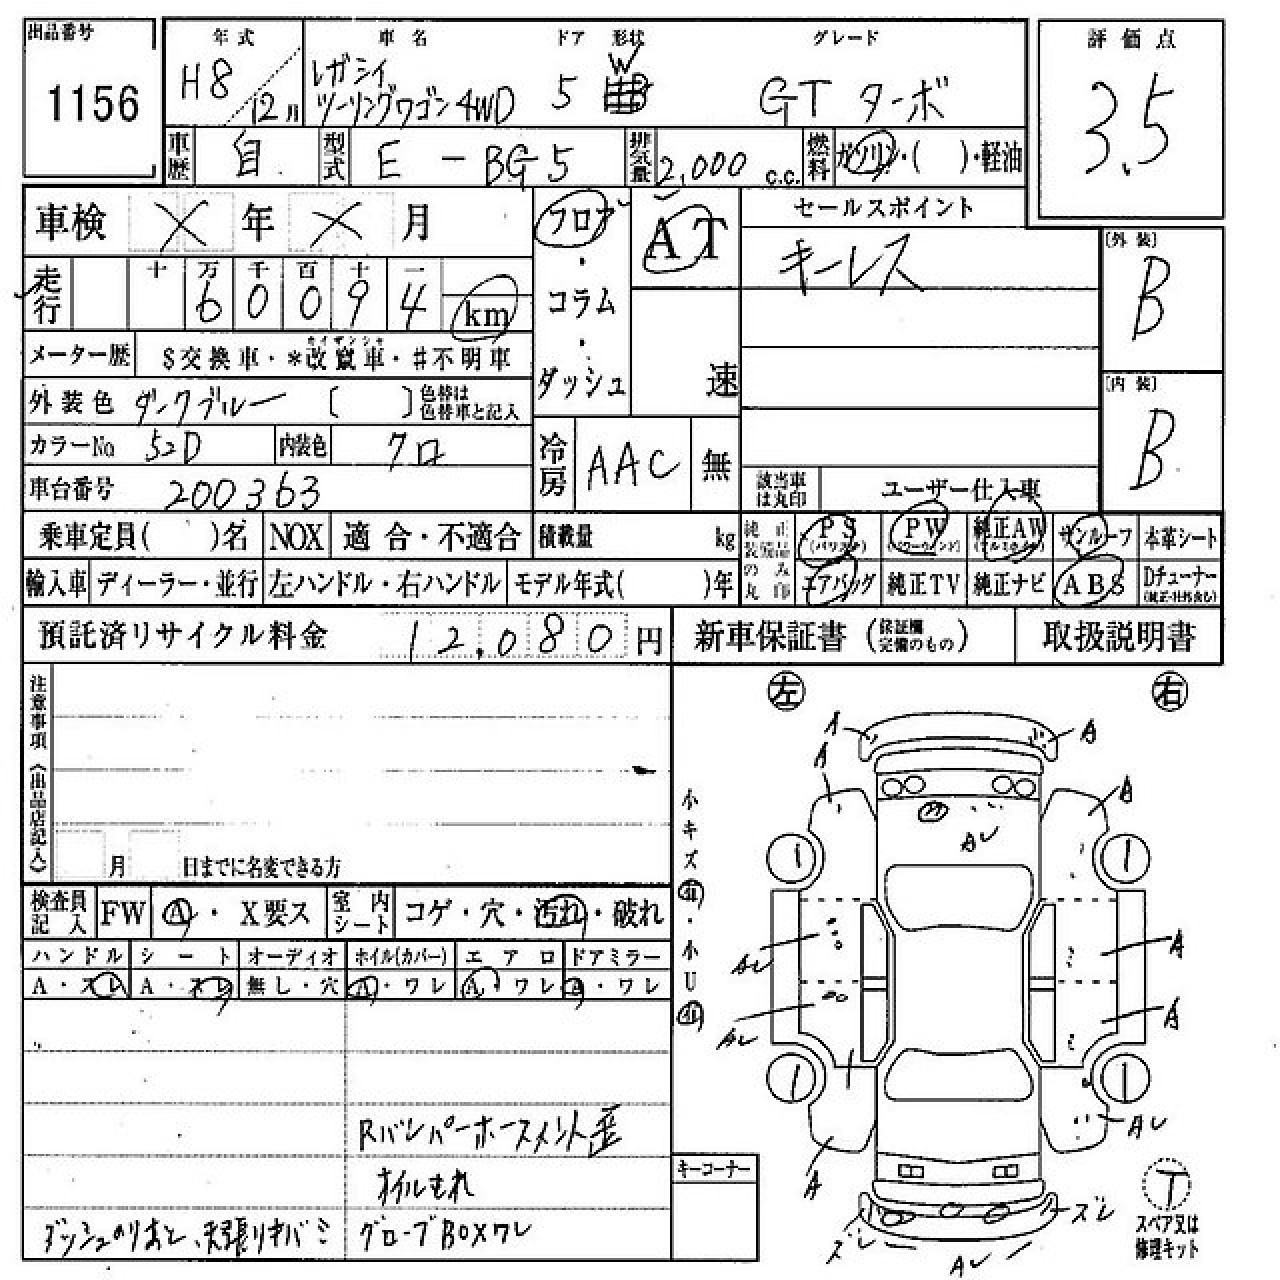 出品番号
1156
年式 車名 ドア 形状 グレード
H8/12月 レガシイ ツーリングワゴン 4WD 5 W GT ターボ
車歴 自 型式 E-BG5 排気量 2,000 c.c. 燃料 ガソリン・( )・軽油
評価点
3.5
車検 X 年 X 月
フロア・コラム・ダッシュ
AT
速
セールスポイント
キーレス
[外装]
B
[内装]
B
走行 十 万 千 百 十 一
60094 km
メーター歴 $交換車・*改竄車・#不明車
カイザンシャ
外装色 ダークブルー [ ] 色替は色替車と記入
カラーNo 52D 内装色 クロ
車台番号 200363
冷房 AAC 無
該当車は丸印 ユーザー仕入車
乗車定員( )名 NOX 適合・不適合 積載量 kg
純正装備品のみ丸印
PS PW 純正AW サンルーフ 本革シート
エアバッグ 純正TV 純正ナビ ABS Dチューナー
輸入車 ディーラー・並行 左ハンドル・右ハンドル モデル年式( )年
預託済リサイクル料金 12,080円
新車保証書(保証欄完備のもの) 取扱説明書
注意事項(出品店記入)
月 日までに名変できる方
検査員記入 FW A・X要ス 室内シート コゲ・穴・汚れ・破れ
ハンドル シート オーディオ ホイル(カバー) エアロ ドアミラー
A・スレ A・スレ 無し・穴 A・ワレ A・ワレ A・ワレ
オイルもれ
グローブBOXワレ
左 右
A
A
A
A
Aレ
小キズ
・小U
Aレ
Aレ
A
A
Aレ
A
ズレ
ズレ
Aレ
キーコーナー
T
スペア又は修理キット